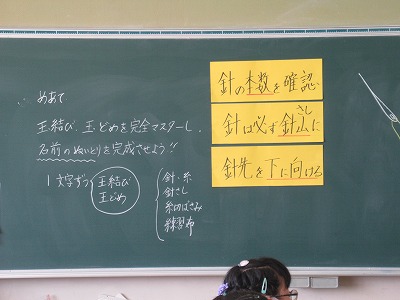 めあて
玉結び、玉どめを完全マスターし、
名前のぬいとりを完成させよう!!
1文字ずつ
玉結び
玉どめ
針・糸
針さし
糸切ばさみ
練習布
針の本数を確認
さし
針は必ず針山に
針先を下に向ける